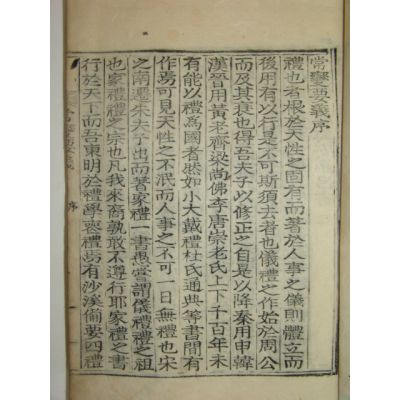 常變要義序
禮也者根於天性之固有而著於人事之儀則體立而
後用有以行是不可斯須去者也儀禮之作始於周公
而及其衰也得吾夫子以修正之自是以降秦用申韓
漢晉用黃老齊梁尚佛李唐崇老氏上下千百年未
有能以禮爲國者然如小大戴禮杜氏通典等書間有
作焉可見天性之不泯而人事之不可一日無禮也宋
之南遷朱夫子出而著家禮一書愚嘗謂儀禮禮之祖
也家禮禮之宗也凡我來裔孰敢不遵行耶家禮之書
行於天下而吾東明於禮學喪禮畧有沙溪備要四禮
序